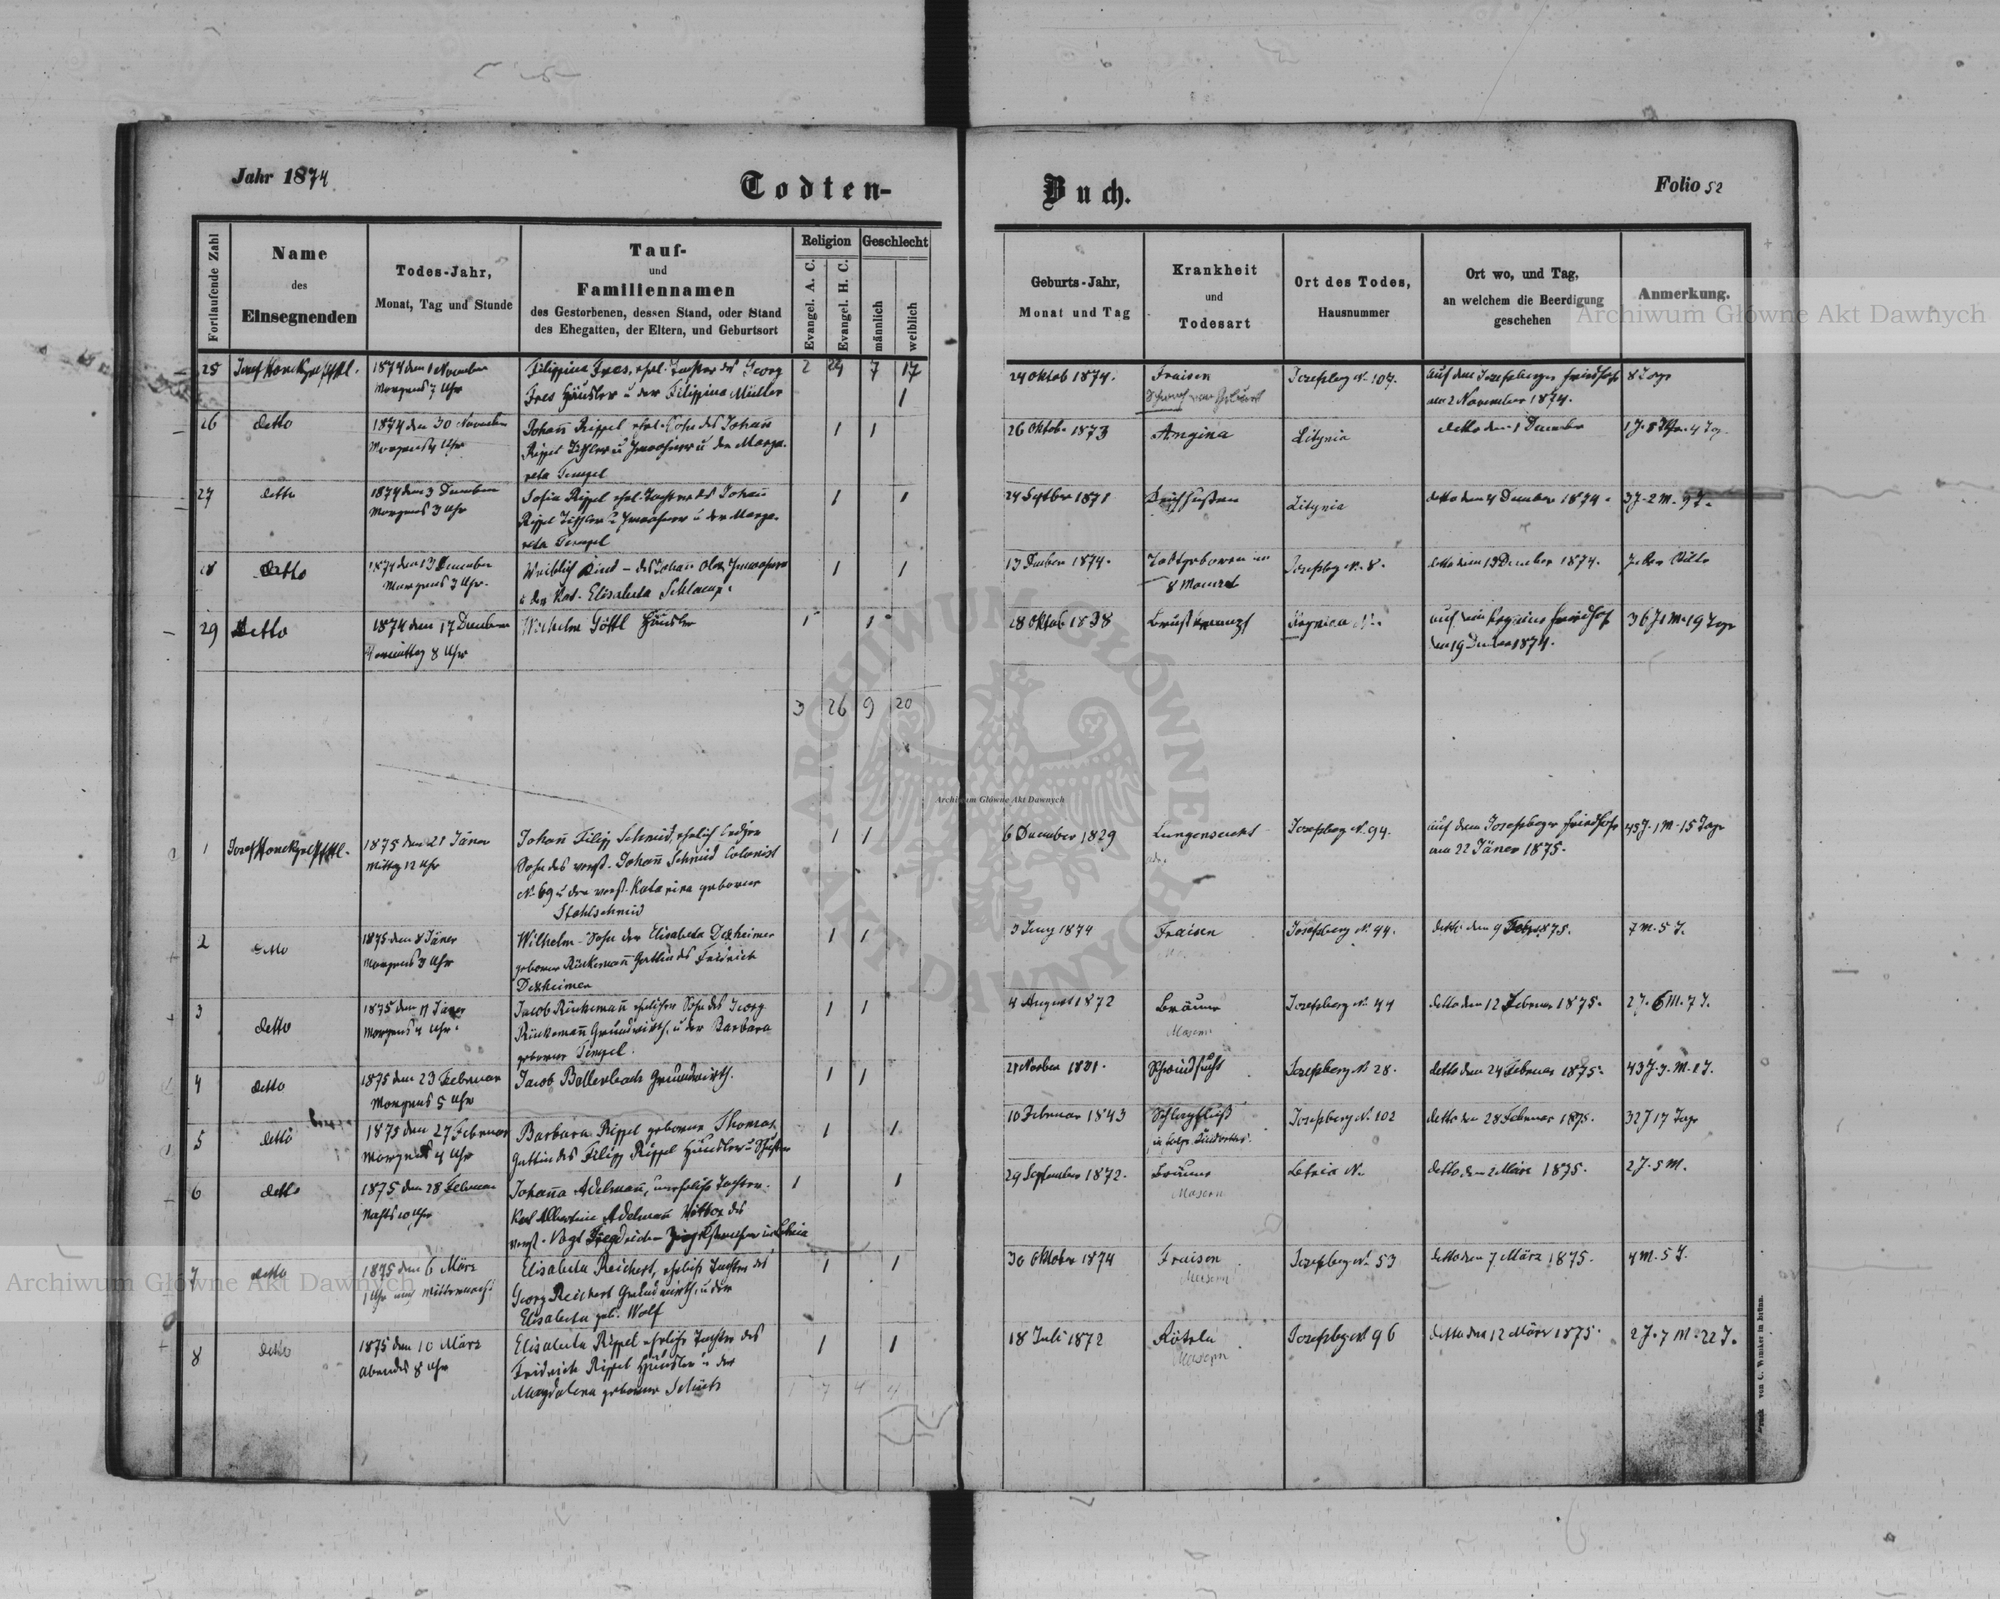 Jahr 1874
Todten-
Buch.
Folio 52
Fortlaufende Zahl
Name
des
Einsegnenden
Todes-Jahr,
Monat, Tag und Stunde
Tauf-
und
Familiennamen
des Gestorbenen, dessen Stand, oder Stand
des Ehegatten, der Eltern, und Geburtsort
Religion
Evangel. A. C.
Evangel. H. C.
Geschlecht
männlich
weiblich
Geburts-Jahr,
Monat und Tag
Krankheit
und
Todesart
Ort des Todes,
Hausnummer
Ort wo, und Tag,
an welchem die Beerdigung
geschehen
Anmerkung.
25
1874 den 1 November
Morgens 7 Uhr
Filippina Fres, ehel. Tochter des Georg
Fres Häusler u der Filippina Müller
2 24 7 17
1
24 Oktob 1874.
Fraisen
Josefsberg N. 107.
auf dem Josefsberger Friedhofe
am 2 November 1874.
8 Tage
26
detto
1874 den 30 November
Morgens 4 Uhr
Johañ Rippel ehel. Sohn des Johañ
Rippel Tischler u Inwohner u der Marga-
reta Tempel
1 1
26 Oktob. 1873
Angina
Litynia
detto den 1 December
27
detto
1874 den 3 December
Morgens 3 Uhr
Sofia Rippel ehel. Tochter des Johañ
Rippel Tischler u Inwohner u der Marga-
reta Tempel
1 1
24 Septber 1871
Keuchhusten
Litynia
detto den 4 December 1874.
3 J. 2 M. 9 T.
28
detto
1874 den 13 December
Morgens 3 Uhr.
Weiblich Kind - des Johañ Inwohner
u der Elisabeta
1 1
13 December 1874.
Todtgeboren im
8 Monat
Josefsbg N. 8.
detto den 13 December 1874.
29
detto
1874 den 17 December
Vormittag 8 Uhr
Wilhelm Göttl Häusler
1 1
28 Oktob 1838
Brustkrampf
auf dem Friedhof
den 19 December 1874.
36 J 1 M. 19 Tage
3 26 9 20
1
1875 den 21 Jäner
Mittag 12 Uhr
Johañ Filipp Schmid, ehelich lediger
Sohn des verst. Johañ Schmid Colonist
N. 69 u der verst. Katarina geborner
Stahlschmid
1 1
6 December 1829
Lungensucht
Josefsberg N. 94.
auf dem Josefsberger Friedhofe
am 22 Jäner 1875.
45 J. 1 M. 15 Tage
2
detto
1875 den 8 Jäner
Morgens 3 Uhr
Wilhelm - Sohn der Elisabeta Dexheimer
geborner Rückemañ Gattin des Fridrich
Dexheimer
1 1
3 Juny 1874
Fraisen
Josefsberg N. 44.
detto den 9 Feb 1875.
7 M. 5 T.
3
detto
1875 den 11 Jäner
Morgens 4 Uhr.
Jacob Rückemañ ehelicher Sohn des Georg
Rückemañ Grundwirth, u der Barbara
geborner Tempel.
1 1
4 August 1872
Bräune
Masern
Josefsberg N. 44
detto den 12 Februar 1875.
2 J. 6 M. 7 T.
4
detto
1875 den 23 Februar
Morgens 5 Uhr
Jacob Bollenbach Grundwirth.
1 1
Schwindsucht
Josefsberg N. 28.
detto den 24 Februar 1875.
5
detto
1875 den 27 Februar
Morgens 4 Uhr
Barbara Rippel geborne Thomas,
Gattin des Filipp Rippel Häusler u Schuster
1 1
10 Februar 1843
Schlagfluß
Josefsberg N. 102
detto den 28 Februar 1875.
32 J 17 Tage
6
detto
1875 den 28 Februar
Nachts 10 Uhr
Johanna Adelmañ, unehelich Tochter.
1 1
29 September 1872.
Bräune
Masern
Letnia N.
detto den 2 März 1875.
2 J. 5 M.
7
detto
1875 den 6 März
1 Uhr nach Mitternacht
Elisabeta Reichert, ehelich Tochter des
Georg Reichert Grundwirth, u der
Elisabeta geb. Wolf
1 1
30 Oktober 1874
Fraisen
Masern
Josefsberg N. 53
detto den 7 März 1875.
4 M. 5 T.
8
detto
1875 den 10 März
Abends 8 Uhr
Elisabeta Rippel eheliche Tochter des
Fridrich Rippel Häusler u der
Magdalena geborner Schütz
1 1
1 7 4 4
18 Juli 1872
Rötzln
Masern
Josefsberg N 96
detto den 12 März 1875.
2 J. 7 M. 22 T.
Druck von C. Winiker in Brünn.
Archiwum Główne Akt Dawnych
Archiwum Główne Akt Dawnych
Archiwum Główne Akt Dawnych
ARCHIWUM GŁÓWNE AKT DAWNYCH